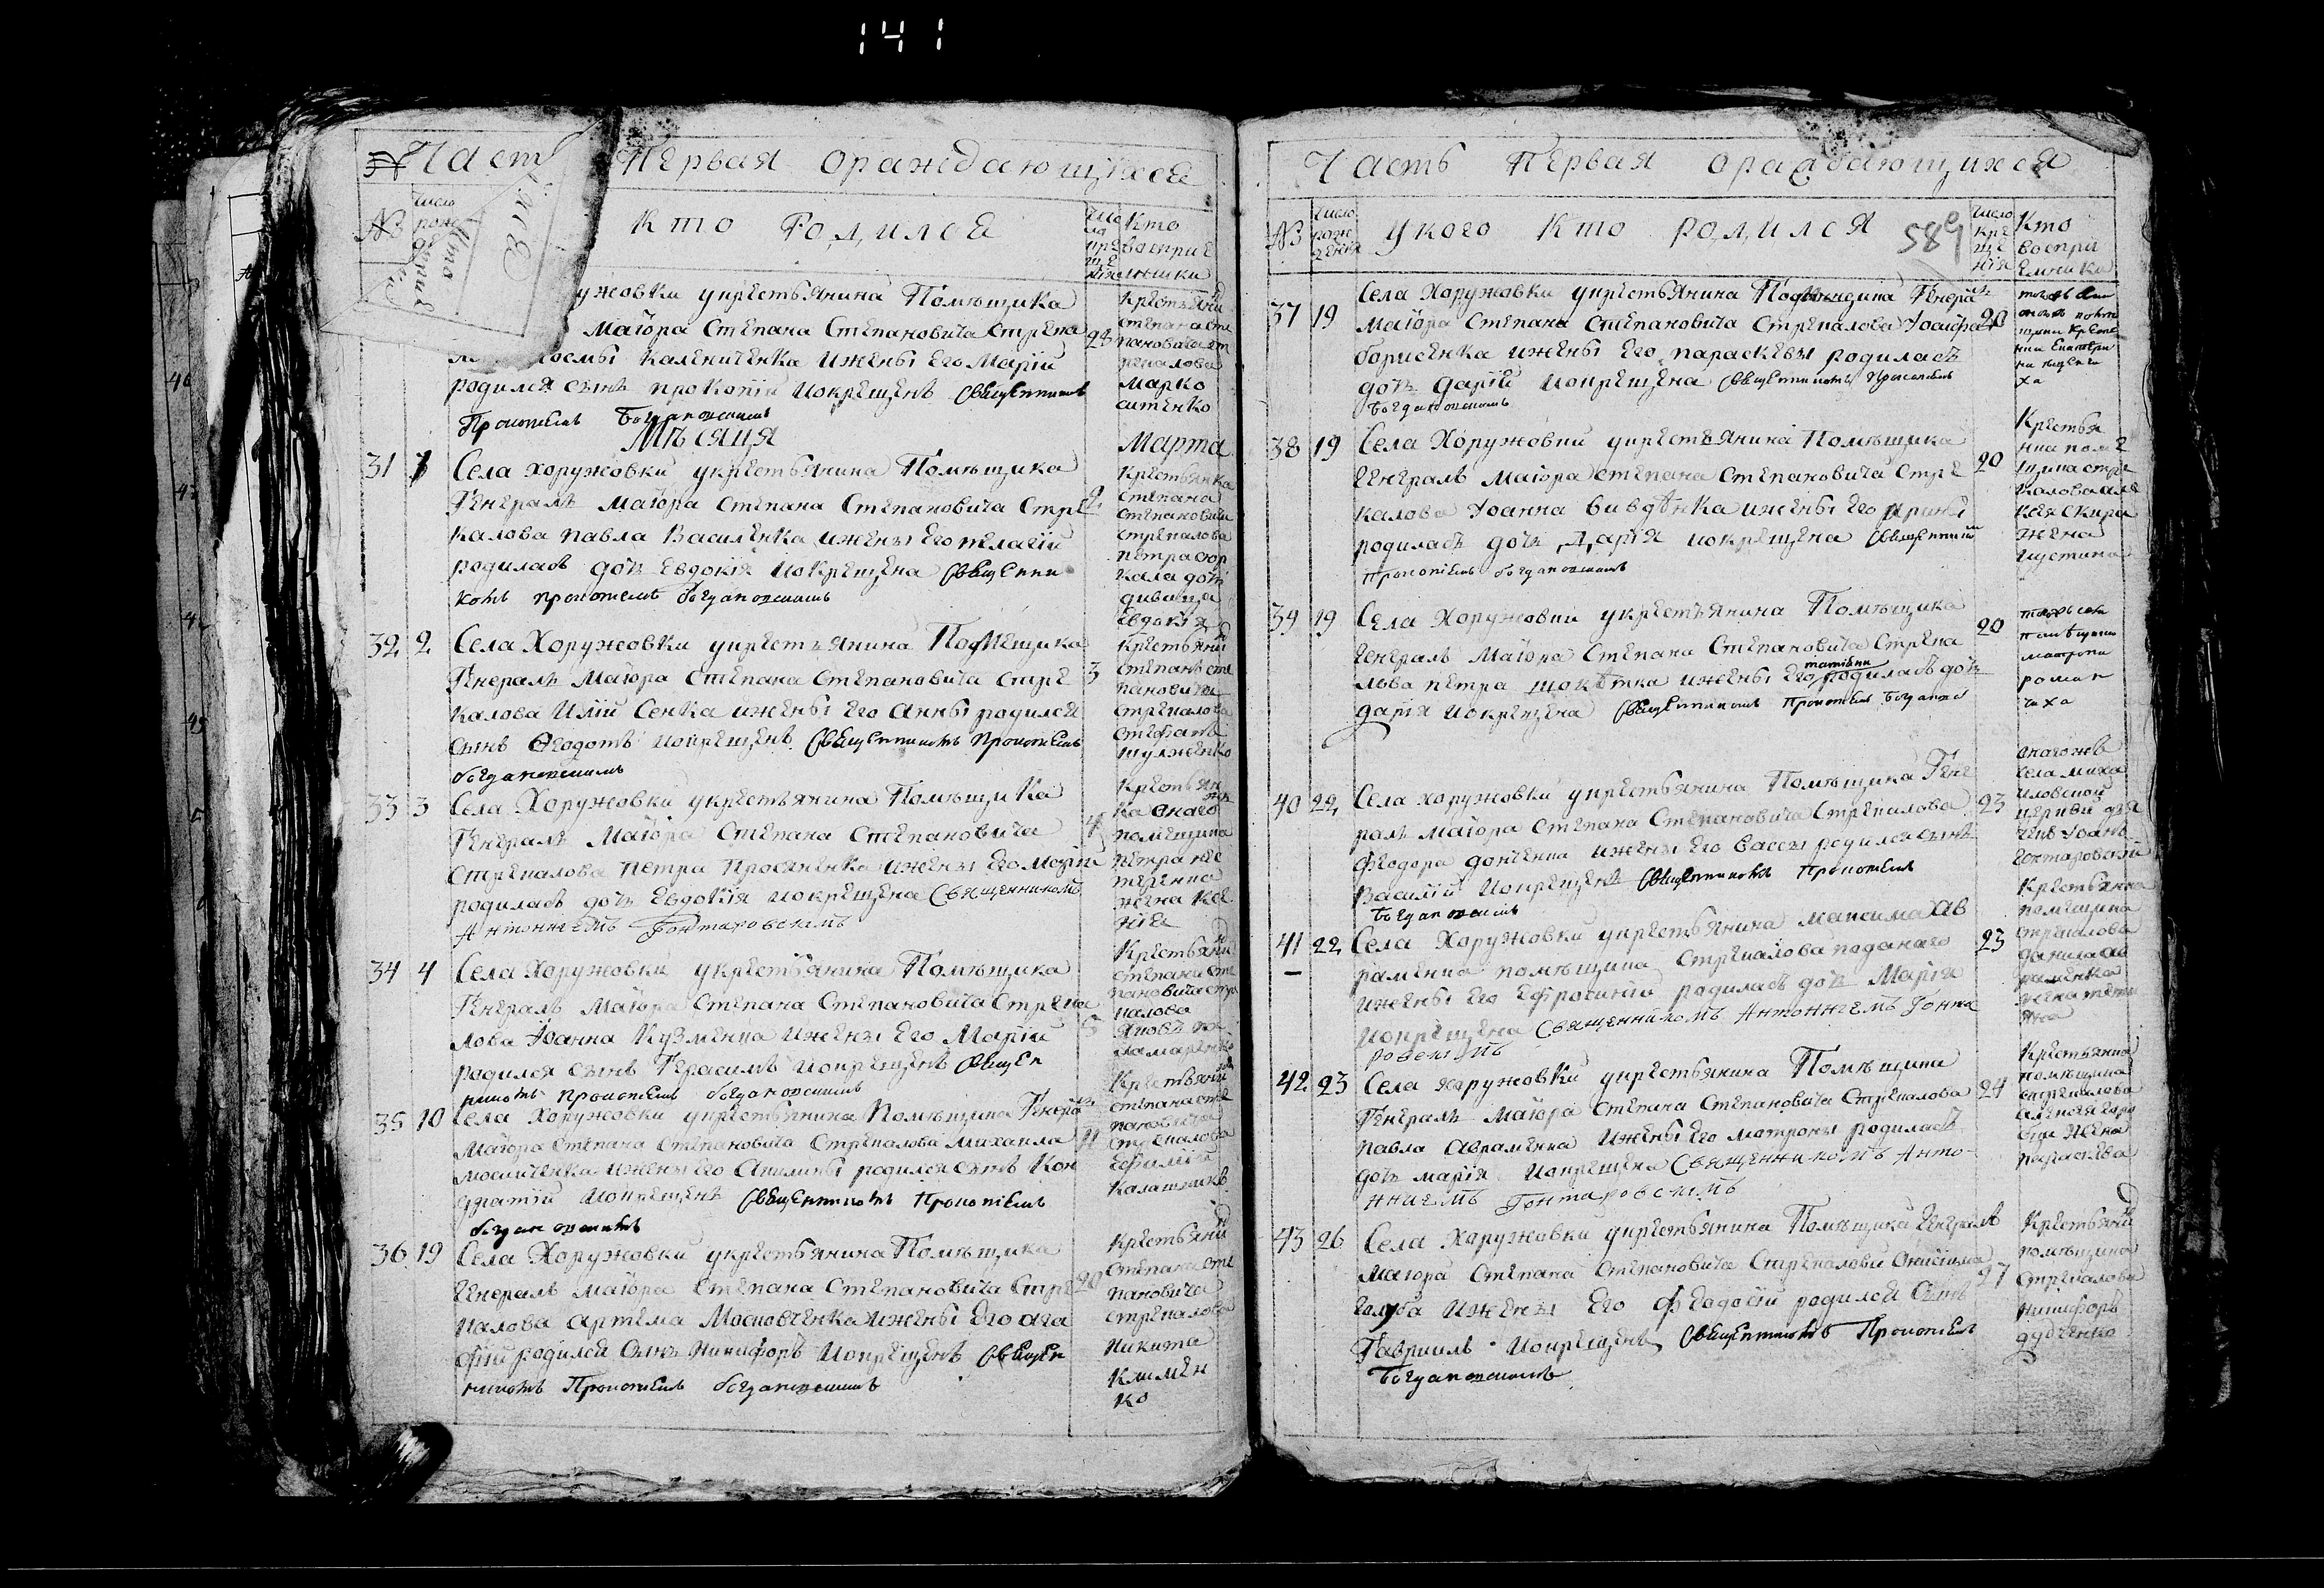 141
Част Первая ораждающихся
№ число рож
кто родился
число кре ще нія
Кто восприе мники
ужовки укрестьянина Помѣщика
Маіора Степана Степановича Стрека
Каленіченка ижены Его Маріи
родился сынъ прокопій Иокрещенъ Священникомъ
Прокопіемъ Богдановскимъ
28
Крестьянинъ
Степана Сте
пановича Ст
рекалова
Марко
ситенко
Мѣсяца Марта
31 1 Села хоружовки укрестьянина Помѣщика
Генералъ Маіора Степана Степановича Стре
калова павла Василенка ижены Его пелагіи
родилась дочь Евдокія Иокрещена Священни
комъ прокопіемъ Богдановскимъ
2
Крестьянка
Степана
Степановича
Стрекалова
петра
кала дочь
дивица
Евдокія
32 2 Села Хоружовки укрестьянина Помѣщика
Генералъ Маіора Степана Степановича Стре
калова Иліи Сенка ижены Его Анны родился
Сынъ Феодотъ Иокрещенъ Священникомъ Прокопіемъ
Богдановскимъ
3
Крестьянинъ
Степана Сте
пановича
Стрекалова
Стефанъ
шулженко
33 3 Села Хоружовки укрестьянина Помѣщика
Генералъ Маіора Степана Степановича
Стрекалова Петра Просяненка ижены Его Маріи
родилась дочь Евдокія Иокрещена Священникомъ
Антоніемъ Гонтаровскимъ
4
Крестьян
ка онаго
помещика
петра нес
теренка
жена Ксе
нія
34 4 Села Хоружовки укрестьянина Помѣщика
Генералъ Маіора Степана Степановича Стрека
лова Іоанна Кузменка ижены Его Маріи
родился сынъ Герасимъ Иокрещенъ Священ
никомъ Прокопіемъ Богдановскимъ
5
Крестьянинъ
Степана Сте
пановича Стре
калова
Яковъ
35 10 Села Хоружовки укрестьянина Помѣщика Генералъ
Маіора Степана Степановича Стрекалова Михаила
ижены Его Акилины родился сынъ Кон
дратій Иокрещенъ Священникомъ Прокопіемъ
Богдановскимъ
11
Крестьянинъ
Степана Сте
пановича
Стрекалова
Ефимій
Калашникъ
36 19 Села Хоружовки укрестьянина Помѣщика
Генералъ Маіора Степана Степановича Стре
калова Артема Московченка ижены Его Ага
фіи родился Сынъ Никифоръ Иокрещенъ Священ
никомъ Прокопіемъ Богдановскимъ
20
Крестьянинъ
Степана Сте
пановича
Стрекалова
Никита
Климен
ко
Часть Первая ораждающихся
589
№ число рож денія
Укого Кто родился
число кре ще нія
Кто воспри емника
37 19 Села Хоружовки укрестьянина Помѣщика Генералъ
Маіора Степана Степановича Стрекалова Іосифа
борисенка ижены Его параскевы родилась
дочь Дарія Иокрещена Священникомъ Прокопіемъ
Богдановскимъ
20
38 19 Села Хоружовки укрестьянина Помѣщика
Генералъ Маіора Степана Степановича Стре
калова Іоанна вивдѣнка ижены Его Ирины
родилась дочь Дарія Иокрещена Священникомъ
Прокопіемъ Богдановскимъ
20
Крестья
нки поме
щика стре
калова але
ксія
жена
иустина
39 19 Села Хоружовки укрестьянина Помѣщика
Генералъ Маіора Степана Степановича Стрека
лова петра шокѣтка ижены Его татіаны родилась дочь
Дарія Иокрещена Священникомъ Прокопіемъ Богдановс
20
40 22 Села хоружовки укрестьянина Помѣщика Гене
ралъ Маіора Степана Степановича Стрекалова
Феодора донченка ижены Его Вассы родился сынъ
Василій Иокрещенъ Священникомъ Прокопіемъ
Богдановскимъ
23
села миха
иловской
церкви дья
чекъ Іоанъ
Гонтаровскій
41 22 Села Хоружовки укрестьянина Максима Ав
раменка помѣщика Стрекалова поданаго
ижены Его Ефросиніи родилась дочь Марія
Иокрещена Священникомъ Антоніемъ Гонта
ровскимъ
23
Крестьянка
помещика
стрекалова
данила ав
раменка
жена
42 23 Села хоружовки укрестьянина Помѣщика
Генералъ Маіора Степана Степановича Стрекалова
Павла Авраменка ижены Его матроны родилась
дочь марія Иокрещена Священникомъ Анто-
ніемъ Гонтаровскимъ
24
Крестьянка
помѣщика
стрекалова
жена
параскева
43 26 Села Хоружовки укрестьянина Помѣщика Генералъ
Маіора Степана Степановича Стрекалова Онисима
Голуба ижены Его Феодосіи родился Сынъ
Гавриилъ Иокрещенъ Священникомъ Прокопіемъ
Богдановскимъ
27
Крестьянинъ
помѣщика
Стрекалова
Никифоръ
дудченко